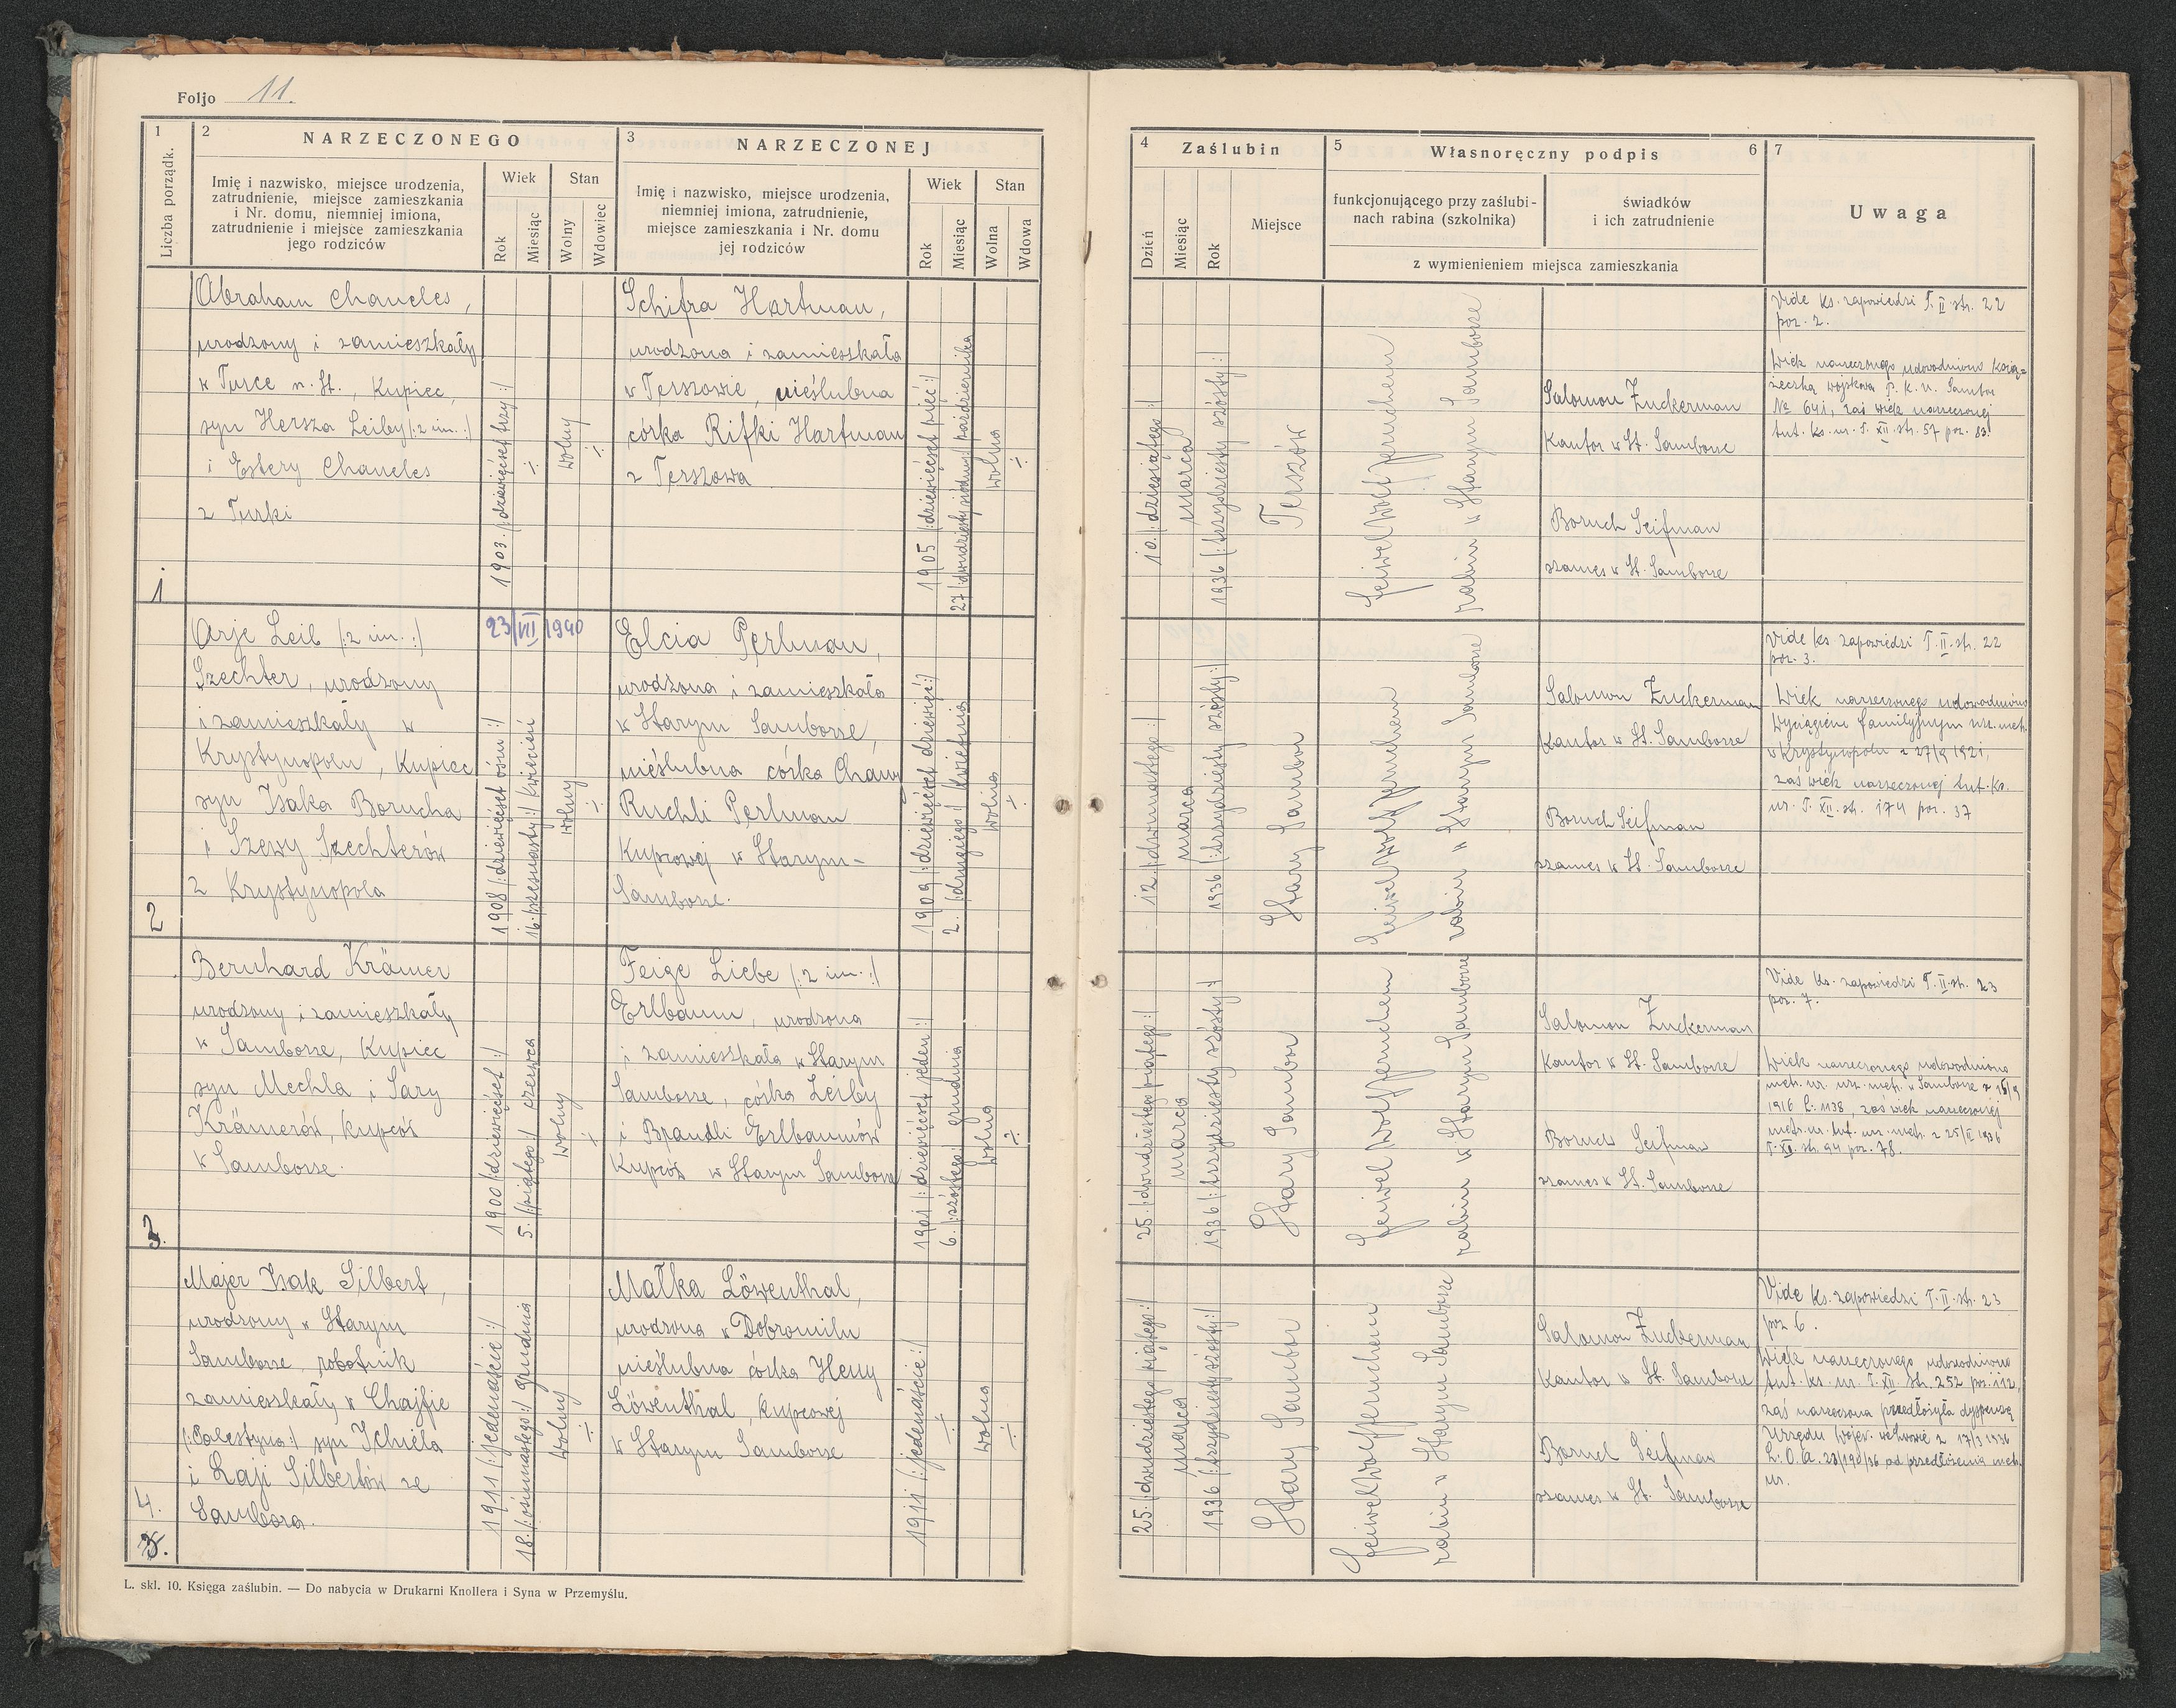 Foljo 11.
1
Liczba porządk.
2
NARZECZONEGO
Imię i nazwisko, miejsce urodzenia,
zatrudnienie, miejsce zamieszkania
i Nr. domu, niemniej imiona,
zatrudnienie i miejsce zamieszkania
jego rodziców
Wiek
Rok
Miesiąc
Stan
Wolny
Wdowiec
3
NARZECZONEJ
Imię i nazwisko, miejsce urodzenia,
niemniej imiona, zatrudnienie,
miejsce zamieszkania i Nr. domu
jej rodziców
Wiek
Rok
Miesiąc
Stan
Wolna
Wdowa
4
Zaślubin
Dzień
Miesiąc
Rok
Miejsce
5
Własnoręczny podpis
6
funkcjonującego przy zaślubi-
nach rabina (szkolnika)
świadków
i ich zatrudnienie
z wymienieniem miejsca zamieszkania
7
Uwaga
1
Abraham Chaneles,
urodzony i zamieszkały
w Turce n. St., Kupiec,
syn Hersza Leiby (:2 im.:)
i Estery Chaneles
z Turki
1903 (:dziewięćset trzy:)
÷
wolny
÷
Schifra Hartman,
urodzona i zamieszkała
w Terszowie, nieślubna
córka Rifki Hartman
z Terszowa
1905 (:dziewięćset pięć:)
27 (:dwudziesty siódmy:) października
wolna
÷
10. (:dziesiątego:)
marca
1936 (:trzydziesty szósty:)
Terszów
Feiwel Wolf Jeruchem
rabin w Starym Samborze
Salomon Zuckerman
Kantor w St. Samborze
Boruch Seifman
szames w St. Samborze
Vide ks. zapowiedzi T. II. str. 22
poz. 2.
Wiek narzeczonego udowodniono Ksią=
żeczką wojskową P. K. U. Sambor
No 641, zaś wiek narzeczonej
tut. ks. ur. T. XII. str. 57 poz. 83.
2
Arje Leib (:2 im.:)
Szechter, urodzony
i zamieszkały w
Krystynopolu, Kupiec
syn Isaka Borucha
i Szewy Szechterów
z Krystynopola
23/VII 1940
1908 (:dziewięćset ośm:)
16. (:szesnasty:) kwiecień
wolny
÷
Elcia Perlman,
urodzona i zamieszkała
w Starym Samborze,
nieślubna córka Chany
Ruchli Perlman
Kupcowej w Starym-
Samborze.
1909 (:dziewięćset dziewięć:)
2. (:drugiego:) kwietnia
wolna
÷
12. (:dwunastego:)
marca
1936 (:trzydziesty szósty:)
Stary Sambor
Feiwel Wolf Jeruchem
rabin w Starym Samborze
Salomon Zuckerman
Kantor w St. Samborze
Boruch Seifman
szames w St. Samborze
Vide ks. zapowiedzi T. II. str. 22
poz. 3.
Wiek narzeczonego udowodniono
Wyciągiem familyjnym urz. metr.
w Krystynopolu z 27/9 1921,
zaś wiek narzeczonej tut. ks.
ur. T. XII. str. 174 poz. 37
3.
Bernhard Krämer
urodzony i zamieszkały
w Samborze, Kupiec
syn Mechla i Sary
Krämerów, kupców
w Samborze.
1900 (:dziewięćset:)
5. (:piątego:) czerwca
wolny
÷
Feige Liebe (:2 im.:)
Erlbaum, urodzona
i zamieszkała w Starym
Samborze, córka Leiby
i Brandli Erlbaumów
Kupców w Starym Samborze
1901 (:dziewięćset jeden:)
6. (:szóstego:) grudnia
wolna
÷
25. (:dwudziestego piątego:)
marca
1936 (:trzydziesty szósty:)
Stary Sambor
Feiwel Wolf Jeruchem
rabin w Starym Samborze
Salomon Zuckerman
Kantor w St. Samborze
Boruch Seifman
szames w St. Samborze
Vide ks. zapowiedzi T. II. str. 23
poz. 7.
Wiek narzeczonego udowodniono
metr. ur. urz. metr. w Samborze z 15/9
1916 L: 1138, zaś wiek narzeczonej
metr. ur. tut. urz. metr. z 25/II 1936
T. XII. str. 94 poz. 78.
4.
Majer Isak Silbert,
urodzony w Starym
Samborze, robotnik
zamieszkały w Chajfie
(:Palestyna:) syn Ichiela
i Łaji Silbertów ze
Sambora.
1911 (:jedenaście:)
18. (:ośmnastego:) grudnia
wolny
÷
Małka Löwenthal,
urodzona w Dobromilu
nieślubna córka Heny
Löwenthal, Kupcowej
w Starym Samborze
1911 (:jedenaście:)
÷
wolna
÷
25. (:dwudziestego piątego:)
marca
1936 (:trzydziesty szósty:)
Stary Sambor
Feiwel Wolf Jeruchem
rabin w Starym Samborze
Salomon Zuckerman
Kantor w St. Samborze
Boruch Seifman
szames w St. Samborze
Vide ks. zapowiedzi T. II. str. 23
poz 6.
Wiek narzeczonego udowodniono
tut. ks. ur. T. XII. str. 252 poz. 112,
zaś narzeczona przedłożyła dyspensę
Urzędu Wojew. we Lwowie z 17/3 1936
L: O. A. 28/190/36 od przedłożenia metr.
ur.
L. skl. 10. Księga zaślubin. — Do nabycia w Drukarni Knollera i Syna w Przemyślu.